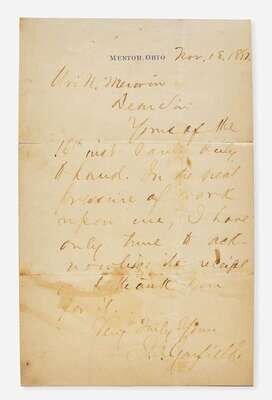 MENTOR, OHIO Nov. 18, 188
Merwin
Dear Sir
Yours of the
16th inst came duly
to hand. In the great
pressure of work
upon me, I have
only time to ack-
nowledge its receipt
and thank you
for it.
Very Truly Yours
J. A. Garfield